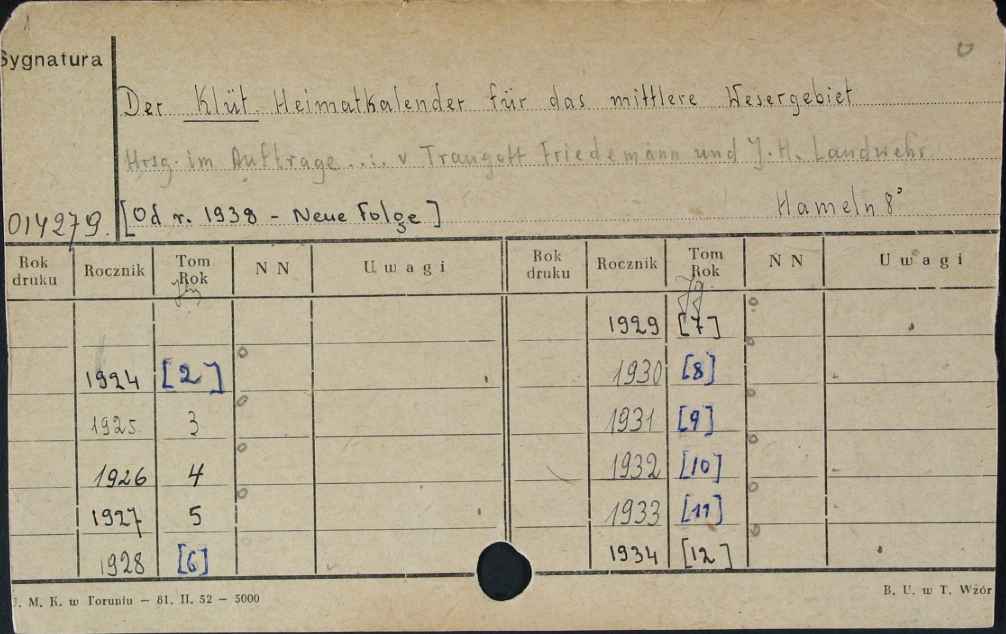 Sygnatura
Der Klüt. Heimatkalender für das mittlere Wesergebiet
Hrsg. im Auftrage ... v Traugott Friedemann und J. H. Landwehr
014279. [Od r. 1938 - Neue Folge] Hameln 8°
Rok druku Rocznik Tom Rok N N Uwagi Rok druku Rocznik Tom Rok N N Uwagi
Jg Jg
1929 [7]
1924 [2] 1930 [8]
1925 3 1931 [9]
1926 4 1932 [10]
1927 5 1933 [11]
1928 [6] 1934 [12]
. M. K. w Toruniu — 81. II. 52 — 5000 B. U. w T. Wzór